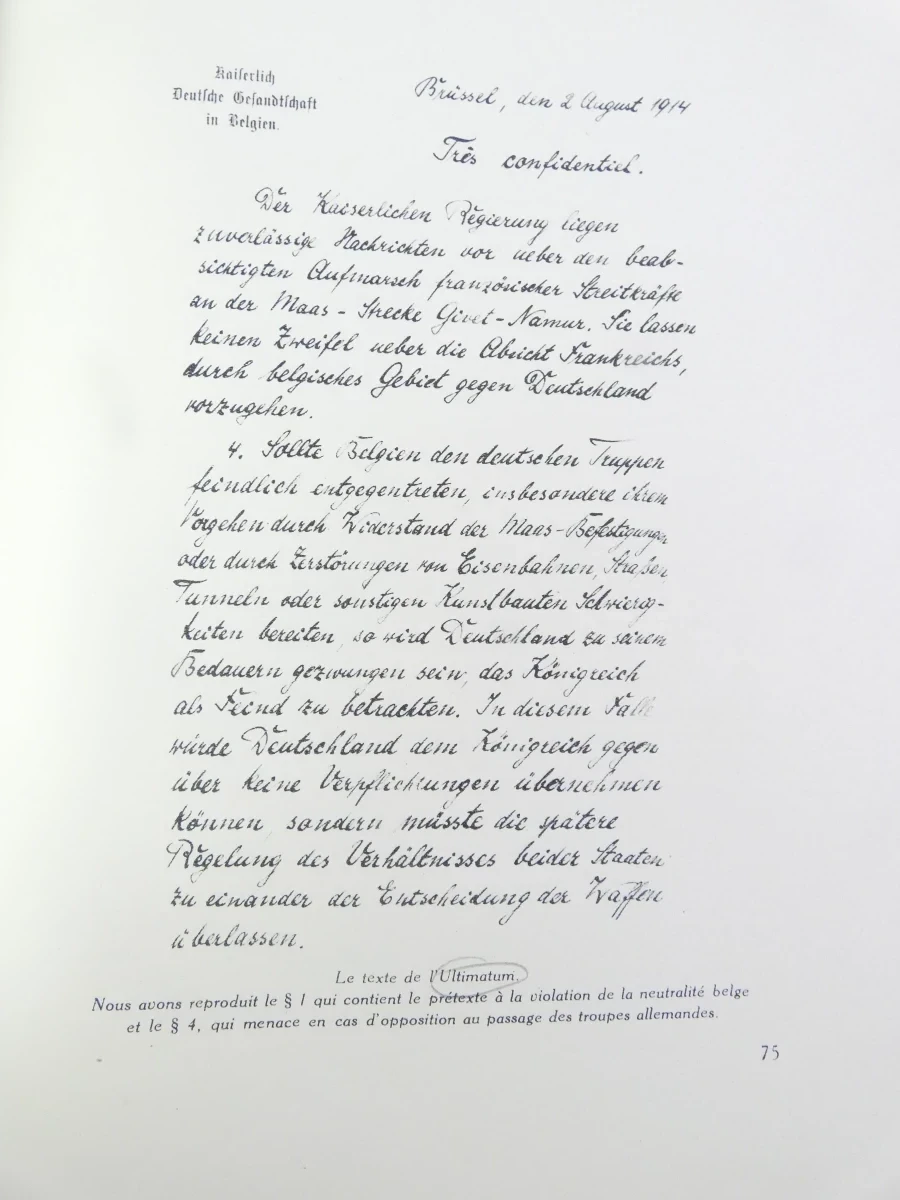 Kaiserlich
Deutsche Gesandtschaft
in Belgien.
Brüssel, den 2 August 1914
Très confidentiel.
Der Kaiserlichen Regierung liegen
zuverlässige Nachrichten vor ueber den beab-
sichtigten Aufmarsch französischer Streitkräfte
an der Maas - Strecke Givet - Namur. Sie lassen
keinen Zweifel ueber die Absicht Frankreichs,
durch belgisches Gebiet gegen Deutschland
vorzugehen.
4. Sollte Belgien den deutschen Truppen
feindlich entgegentreten, insbesondere ihrem
Vorgehen durch Widerstand der Maas-Befestigungen
oder durch Zerstörungen von Eisenbahnen, Straßen,
Tunneln oder sonstigen Kunstbauten Schwierig-
keiten bereiten, so wird Deutschland zu seinem
Bedauern gezwungen sein, das Königreich
als Feind zu betrachten. In diesem Falle
würde Deutschland dem Königreich gegen
über keine Verpflichtungen übernehmen
können, sondern müsste die spätere
Regelung des Verhältnisses beider Staaten
zu einander der Entscheidung der Waffen
überlassen.
Le texte de l'Ultimatum.
Nous avons reproduit le § 1 qui contient le prétexte à la violation de la neutralité belge
et le § 4, qui menace en cas d'opposition au passage des troupes allemandes.
75